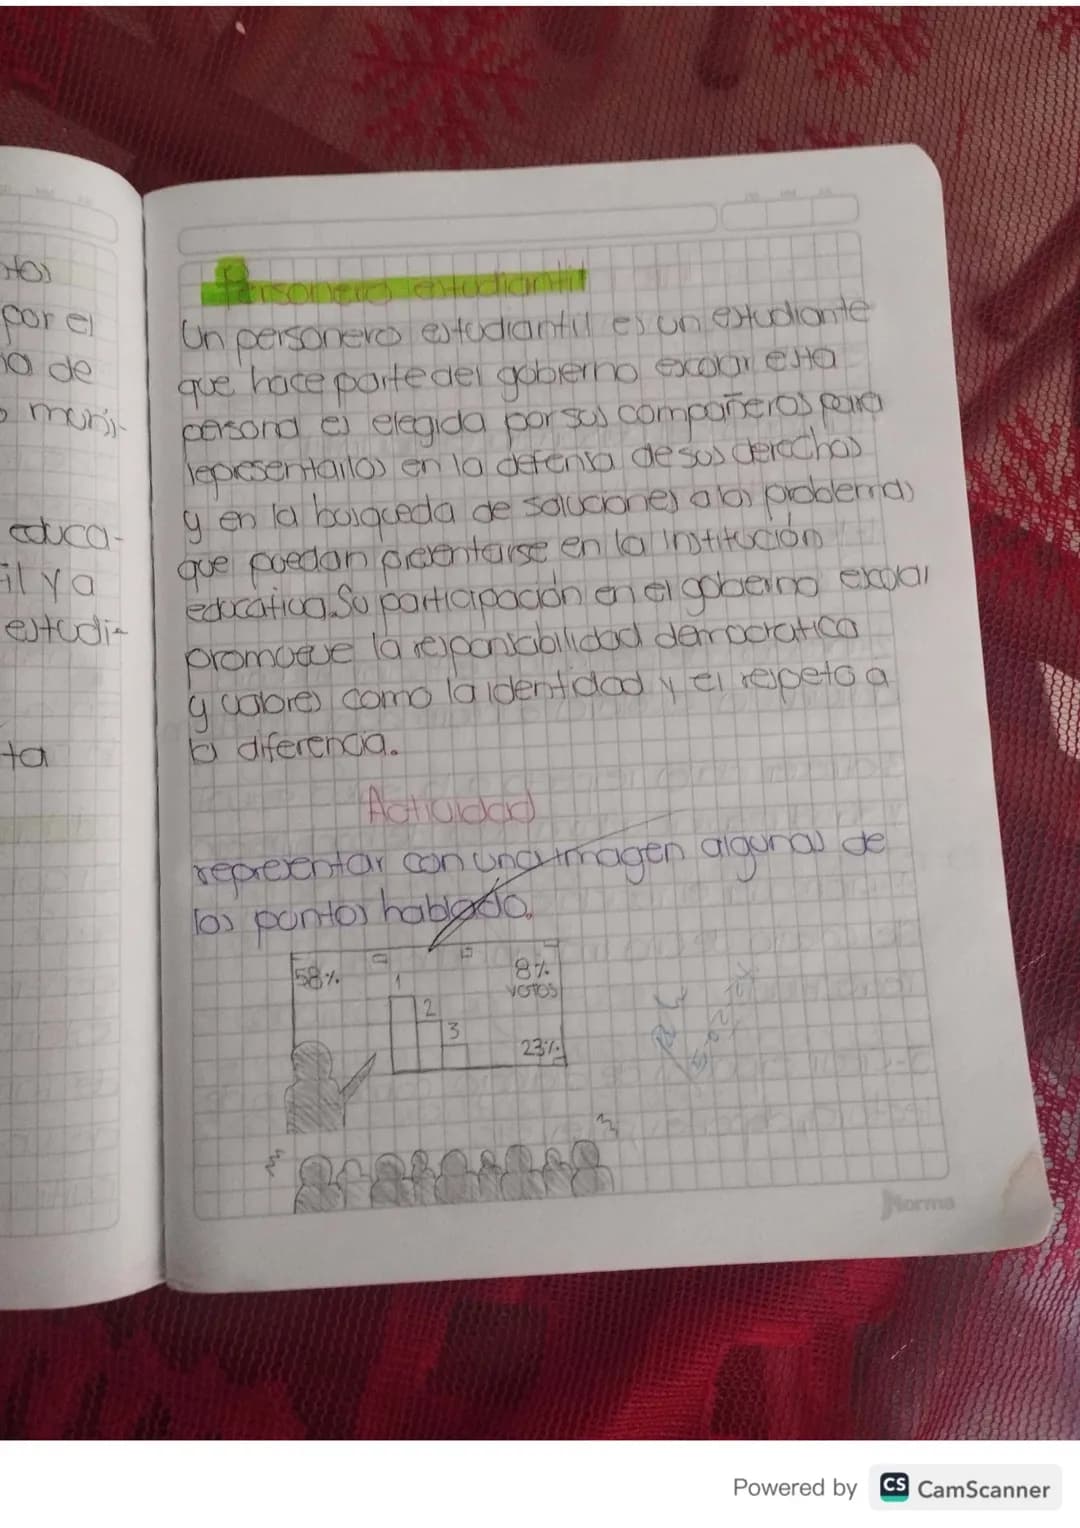 tos
por el
ia de
o munii-
educa-
il y a
estudi-
ta
Personero estudiantil
Un personero estudiantil es un estudiante
que hace parte del gobierno escolar esta
persona es elegida por sus compañeros para
representarlos en la defensa de sus derechos
y en la busqueda de soluciones a los problemas
que puedan presentarse en la institución
educativa. Su participación en el gobierno escolar
promueve la responsabilidad democratica
y valores como la identidad y el respeto a
la diferencia.
Actividad
representar con una imagen algunas de
los puntos hablado.
58%
1
8%
VOTOS
2
3
23%
Norma
Powered by CS CamScanner